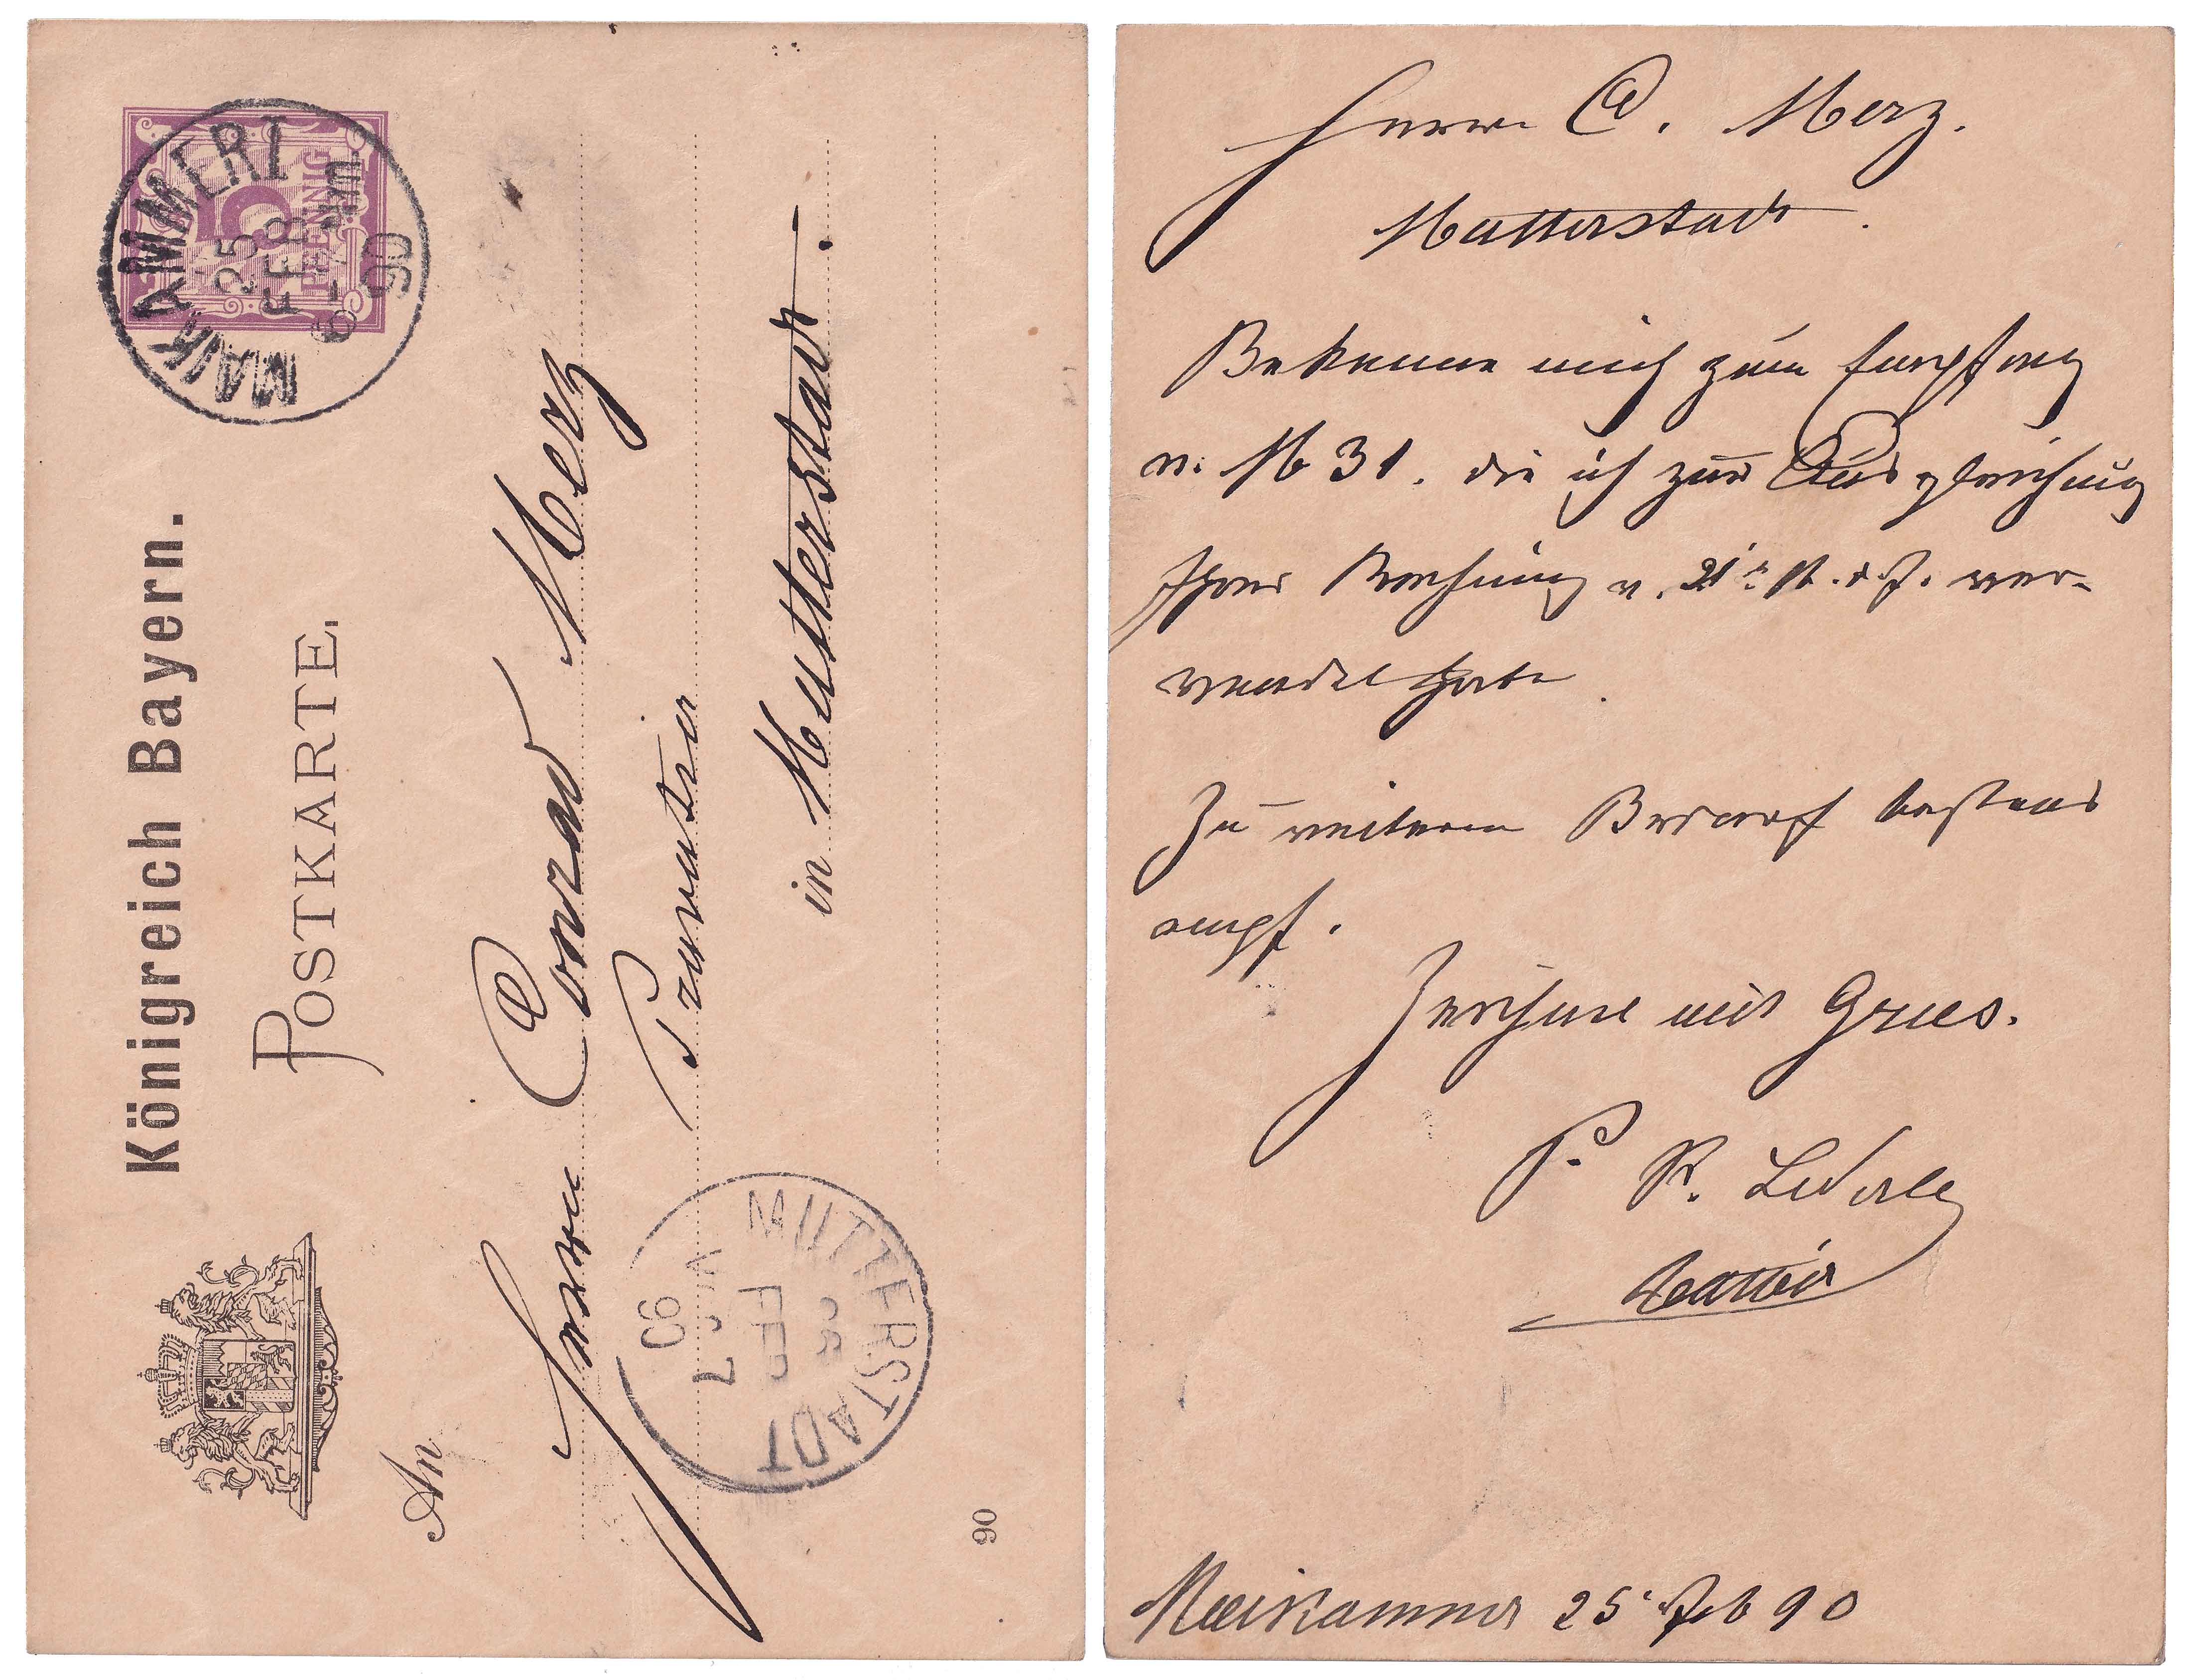 Königreich Bayern.
POSTKARTE.
5
PFENNIG
MAIKAMMER I
25
FEB
6-7 Nm
90
An
Herrn Conrad Merz
in Mutterstadt.
MUTTERSTADT
FEB
7
90
90
Herrn C. Merz.
Mutterstadt.
Bekenne mich zum Empfang
v. M 31. die ich zur Ausgleichung
Ihrer Rechnung v. 21 d. J. ver-
wendet habe
Zu weiterem Bedarf bestens
empf.
Zeichne mit Grues.
P. R.
Maikammer 25. Feb 90